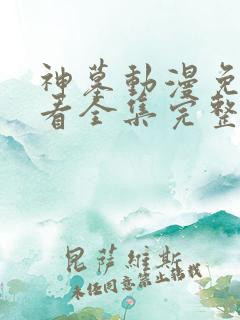 神墓動漫免
看全集完整
昆薩維斯
未经同意禁止转载